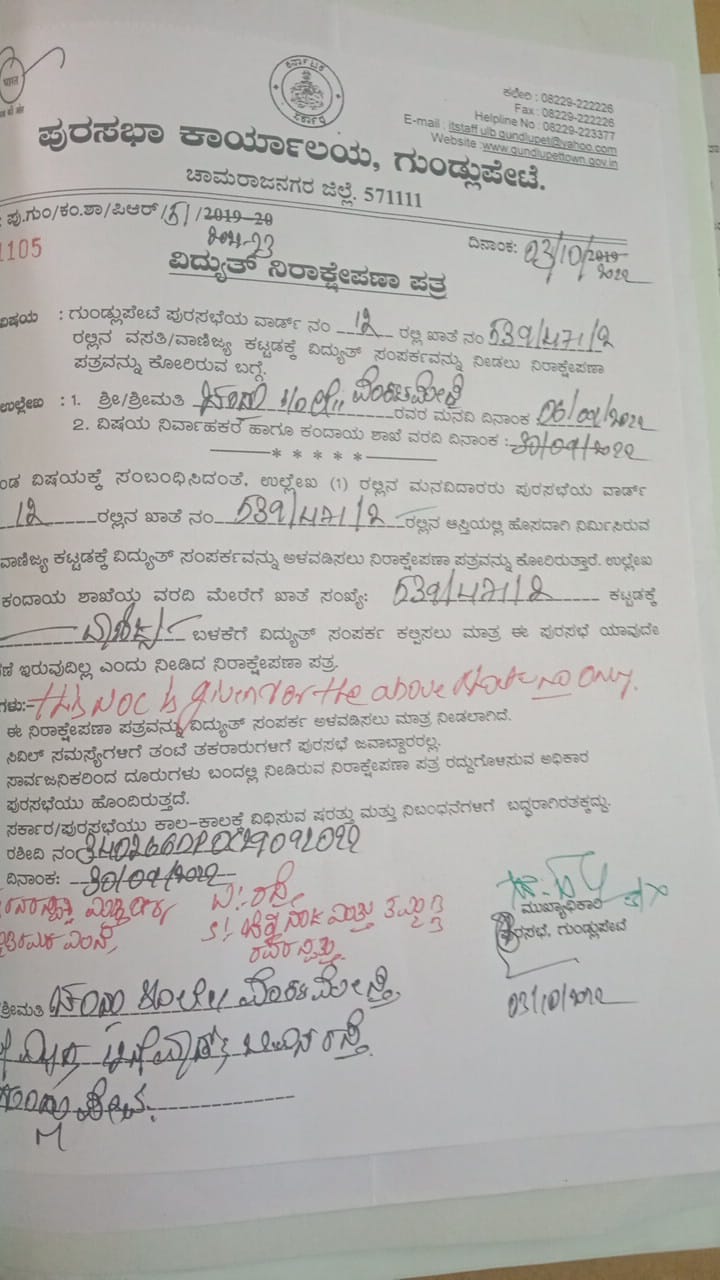 ಕಛೇರಿ : 08229-222226
Fax : 08229-222226
Helpline No : 08229-223377
E-mail : itstaff_ulb_gundlupet@yahoo.com
Website :www.gundlupettown.gov.in
ಪುರಸಭಾ ಕಾರ್ಯಾಲಯ, ಗುಂಡ್ಲುಪೇಟೆ.
ಚಾಮರಾಜನಗರ ಜಿಲ್ಲೆ. 571111
ಪು.ಗುಂ/ಕಂ.ಶಾ/ಪಿಆರ್/51/2019-20
2022-23
1105
ದಿನಾಂಕ: 03/10/2019
2022
ವಿದ್ಯುತ್ ನಿರಾಕ್ಷೇಪಣಾ ಪತ್ರ
ವಿಷಯ : ಗುಂಡ್ಲುಪೇಟೆ ಪುರಸಭೆಯ ವಾರ್ಡ್ ನಂ 12 ರಲ್ಲಿ ಖಾತೆ ನಂ 539/471/2
ರಲ್ಲಿನ ವಸತಿ/ವಾಣಿಜ್ಯ ಕಟ್ಟಡಕ್ಕೆ ವಿದ್ಯುತ್ ಸಂಪರ್ಕವನ್ನು ನೀಡಲು ನಿರಾಕ್ಷೇಪಣಾ
ಪತ್ರವನ್ನು ಕೋರಿರುವ ಬಗ್ಗೆ.
ಉಲ್ಲೇಖ : 1. ಶ್ರೀ/ಶ್ರೀಮತಿ ರವರ ಮನವಿ ದಿನಾಂಕ 06/09/2022
2. ವಿಷಯ ನಿರ್ವಾಹಕರ ಹಾಗೂ ಕಂದಾಯ ಶಾಖೆ ವರದಿ ದಿನಾಂಕ : 30/09/2022
* * * * *
ಂಡ ವಿಷಯಕ್ಕೆ ಸಂಬಂಧಿಸಿದಂತೆ, ಉಲ್ಲೇಖ (1) ರಲ್ಲಿನ ಮನವಿದಾರರು ಪುರಸಭೆಯ ವಾರ್ಡ್
12 ರಲ್ಲಿನ ಖಾತೆ ನಂ 539/471/2 ರಲ್ಲಿನ ಆಸ್ತಿಯಲ್ಲಿ ಹೊಸದಾಗಿ ನಿರ್ಮಿಸಿರುವ
ವಾಣಿಜ್ಯ ಕಟ್ಟಡಕ್ಕೆ ವಿದ್ಯುತ್ ಸಂಪರ್ಕವನ್ನು ಅಳವಡಿಸಲು ನಿರಾಕ್ಷೇಪಣಾ ಪತ್ರವನ್ನು ಕೋರಿರುತ್ತಾರೆ. ಉಲ್ಲೇಖ
ಕಂದಾಯ ಶಾಖೆಯ ವರದಿ ಮೇರೆಗೆ ಖಾತೆ ಸಂಖ್ಯೆ: 539/471/2 ಕಟ್ಟಡಕ್ಕೆ
ಬಳಕೆಗೆ ವಿದ್ಯುತ್ ಸಂಪರ್ಕ ಕಲ್ಪಿಸಲು ಮಾತ್ರ ಈ ಪುರಸಭೆ ಯಾವುದೇ
ಣೆ ಇರುವುದಿಲ್ಲ ಎಂದು ನೀಡಿದ ನಿರಾಕ್ಷೇಪಣಾ ಪತ್ರ.
ಗಳು:- This NOC is given for the above khata no only.
ಈ ನಿರಾಕ್ಷೇಪಣಾ ಪತ್ರವನ್ನು ವಿದ್ಯುತ್ ಸಂಪರ್ಕ ಅಳವಡಿಸಲು ಮಾತ್ರ ನೀಡಲಾಗಿದೆ.
ಸಿವಿಲ್ ಸಮಸ್ಯೆಗಳಿಗೆ ತಂಟೆ ತಕರಾರುಗಳಿಗೆ ಪುರಸಭೆ ಜವಾಬ್ದಾರರಲ್ಲ.
ಸಾರ್ವಜನಿಕರಿಂದ ದೂರುಗಳು ಬಂದಲ್ಲಿ ನೀಡಿರುವ ನಿರಾಕ್ಷೇಪಣಾ ಪತ್ರ ರದ್ದುಗೊಳಿಸುವ ಅಧಿಕಾರ
ಪುರಸಭೆಯು ಹೊಂದಿರುತ್ತದೆ.
ಸರ್ಕಾರ/ಪುರಸಭೆಯು ಕಾಲ-ಕಾಲಕ್ಕೆ ವಿಧಿಸುವ ಷರತ್ತು ಮತ್ತು ನಿಬಂಧನೆಗಳಿಗೆ ಬದ್ಧರಾಗಿರತಕ್ಕದ್ದು.
ರಶೀದಿ ನಂ
ದಿನಾಂಕ: 30/09/2022
ಮುಖ್ಯಾಧಿಕಾರಿ
ಪುರಸಭೆ, ಗುಂಡ್ಲುಪೇಟೆ
03/10/2022
ಶ್ರೀಮತಿ